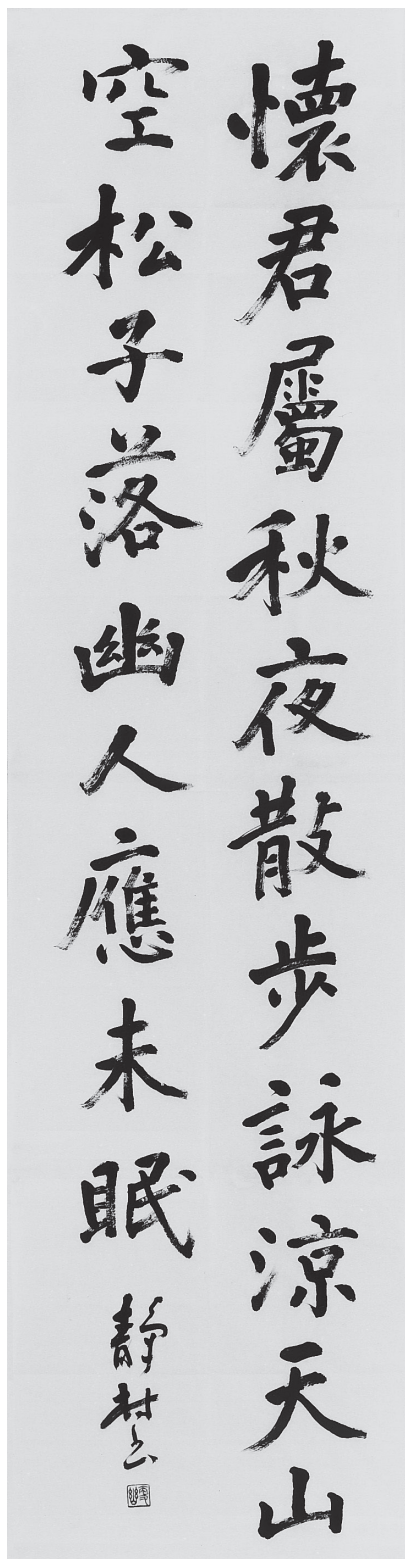 懷君屬秋夜散步詠涼天山
空松子落幽人應未眠
靜村書